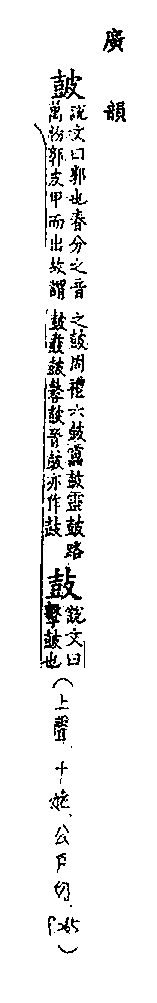 廣韻
皷
說文曰郭也春分之音
萬物郭皮甲而出故謂
之鼓周禮六鼓靁鼓靈鼓路
鼓鼖鼓鼛鼓晉鼓亦作皷
鼓
說文曰
擊鼓也
(上聲、十姥、公戶切、P.265)